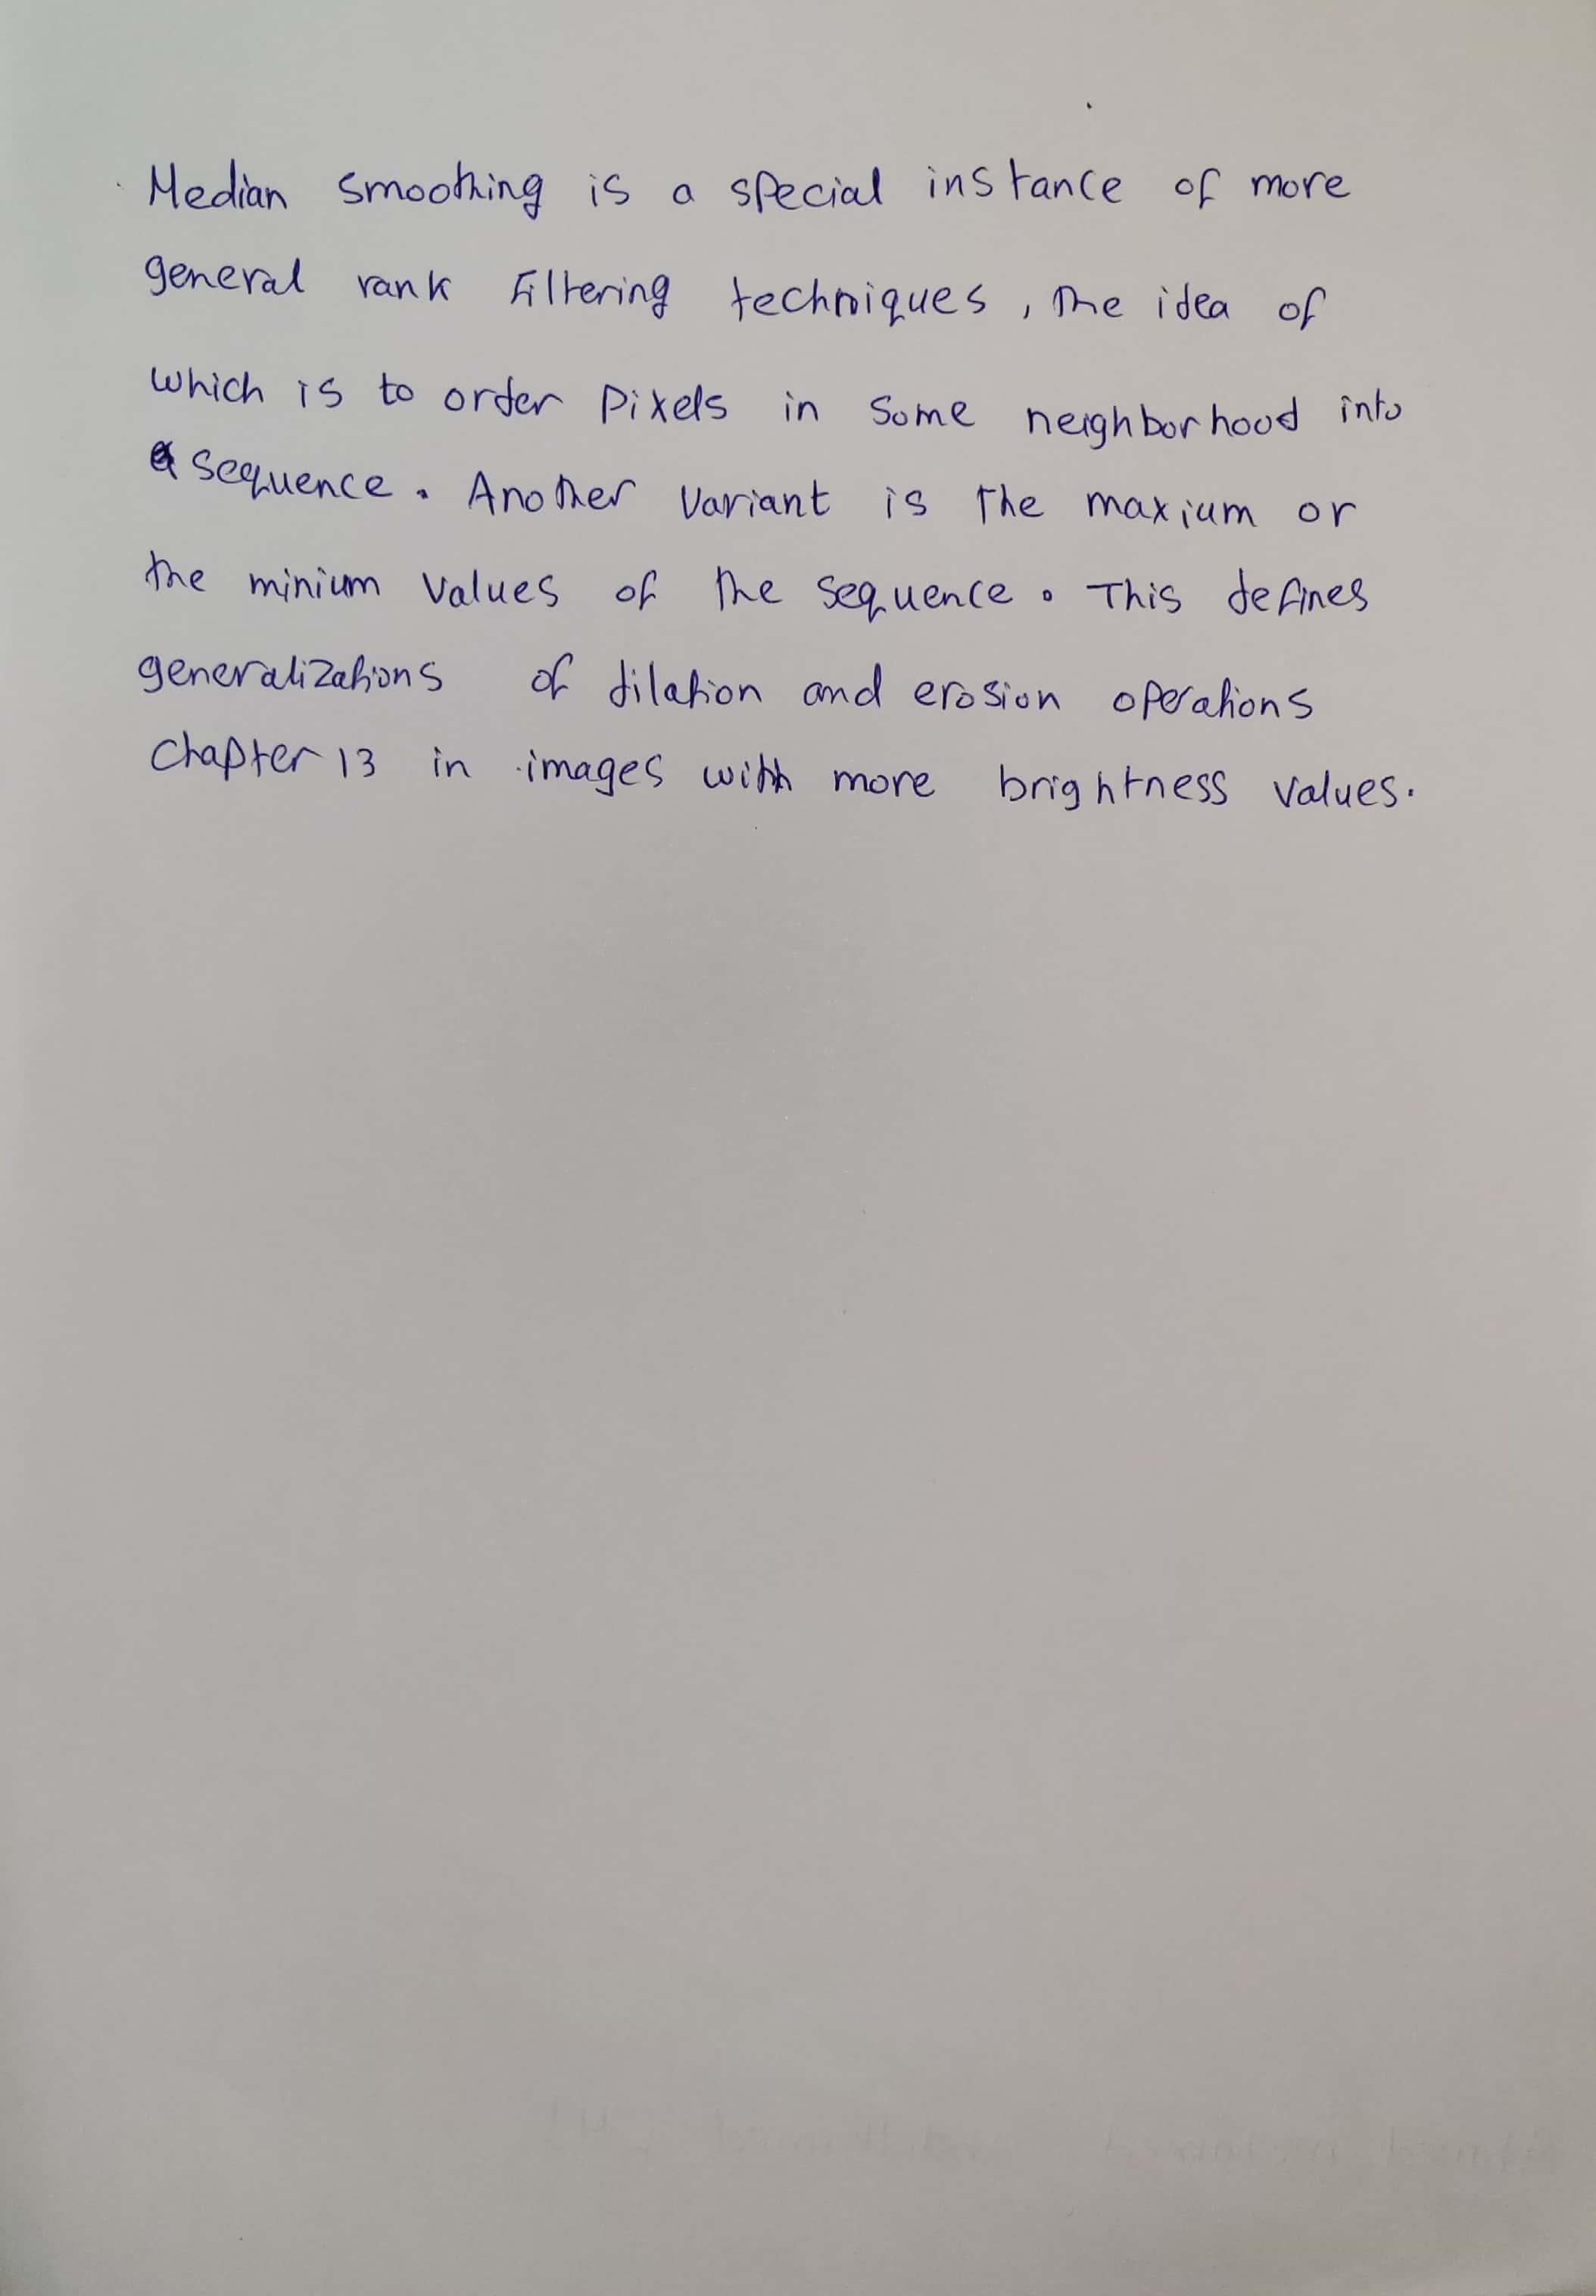 Median smoothing is a special instance of more
general rank filtering techniques, the idea of
which is to order pixels in some neighborhood into
a sequence. Another variant is the maxium or
the minium values of the sequence. This defines
generalizations of dilation and erosion operations
Chapter 13 in images with more brightness values.